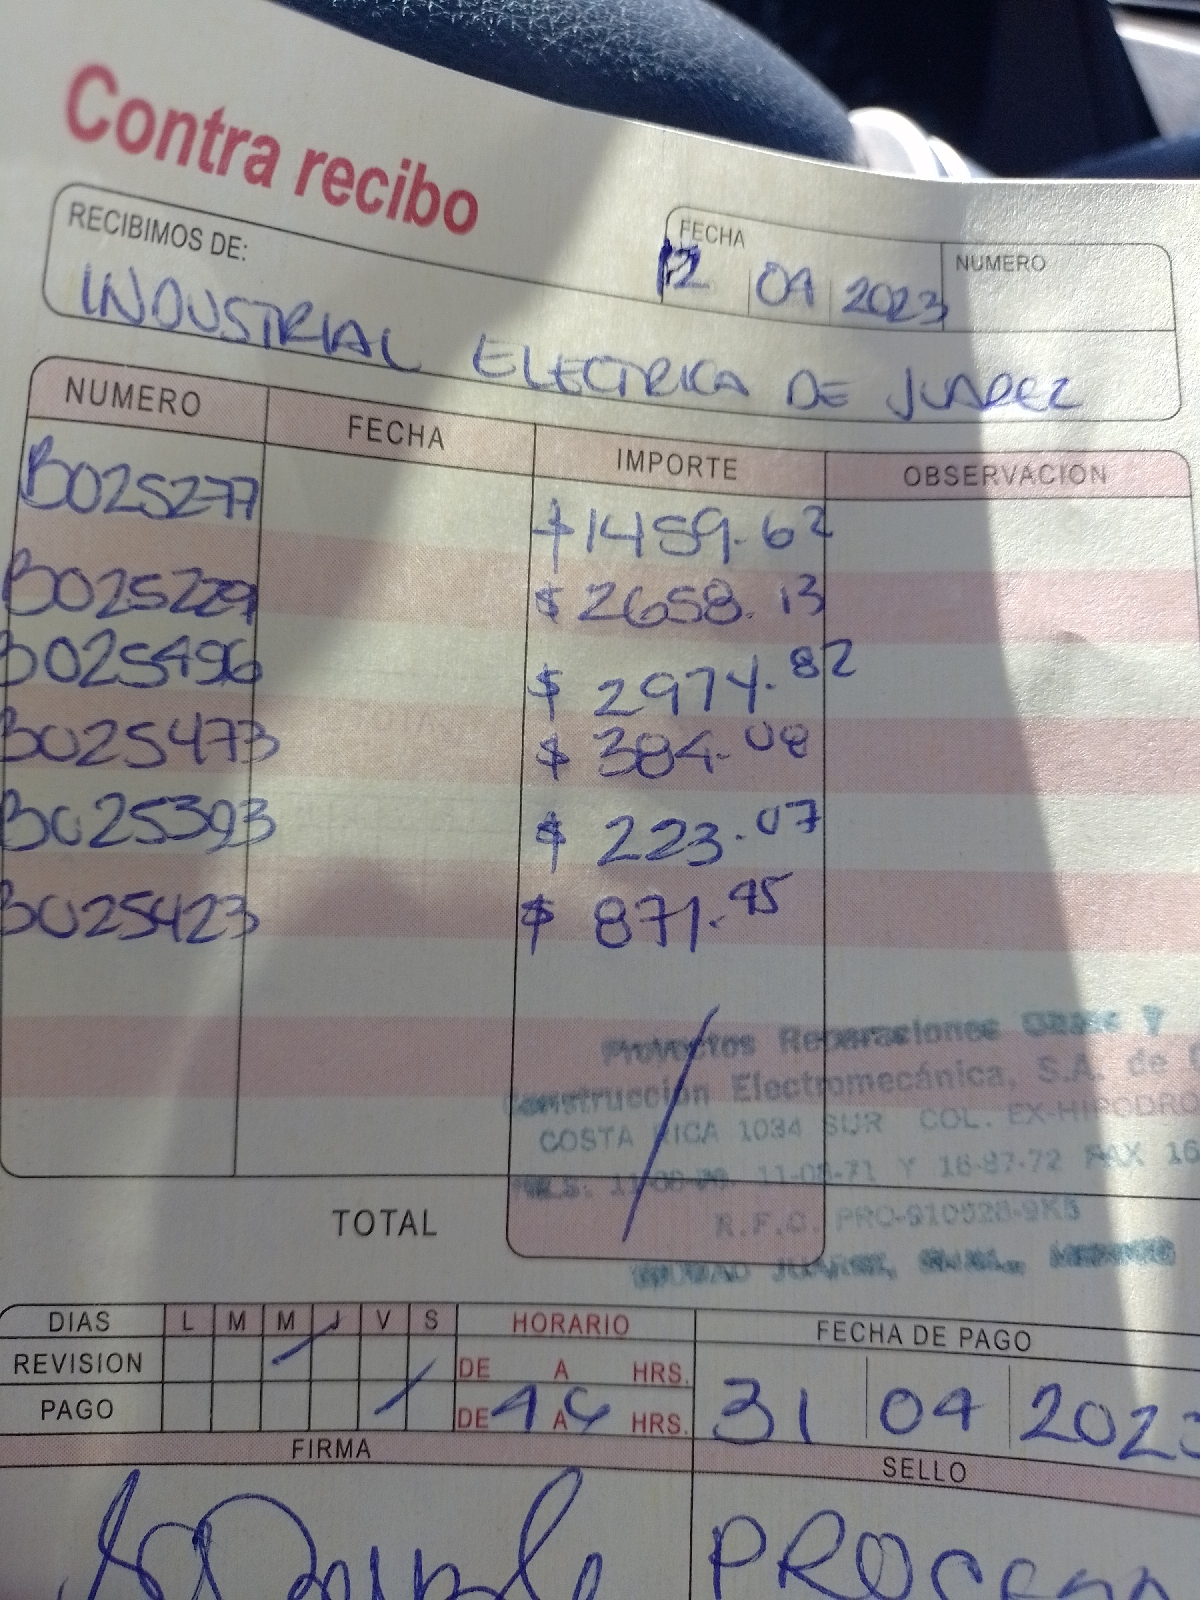 Contra recibo
RECIBIMOS DE:
FECHA
NUMERO
12 04 2023
INDUSTRIAL ELECTRICA DE JUAREZ
NUMERO FECHA IMPORTE OBSERVACION
B025277 $1459.62
B025229 $2658.13
B025496 $2974.82
B025473 $384.08
B025393 $223.07
B025423 $871.95
Proyectos Reparaciones Obras Y
Construcción Electromecánica, S.A. de
COSTA RICA 1034 SUR COL. EX-HIPODRO
11-08-71 Y 16-87-72 FAX 16
R.F.C. PRO-910528-9K5
TOTAL
CIUDAD JUAREZ, CHIH., MEXICO
DIAS L M M J V S HORARIO FECHA DE PAGO
REVISION DE A HRS.
PAGO DE 4 A 6 HRS. 31 04 2023
FIRMA SELLO